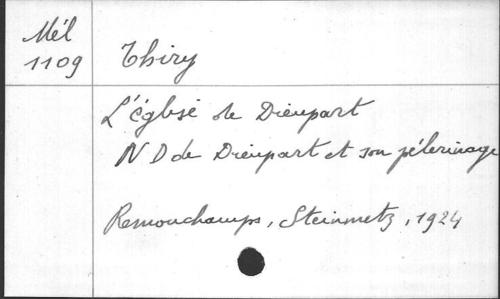 Mél
1109
Thiry
L'église de Dieupart
N D de Dieupart et son pélerinage
Remouchamps, Steinmetz, 1924